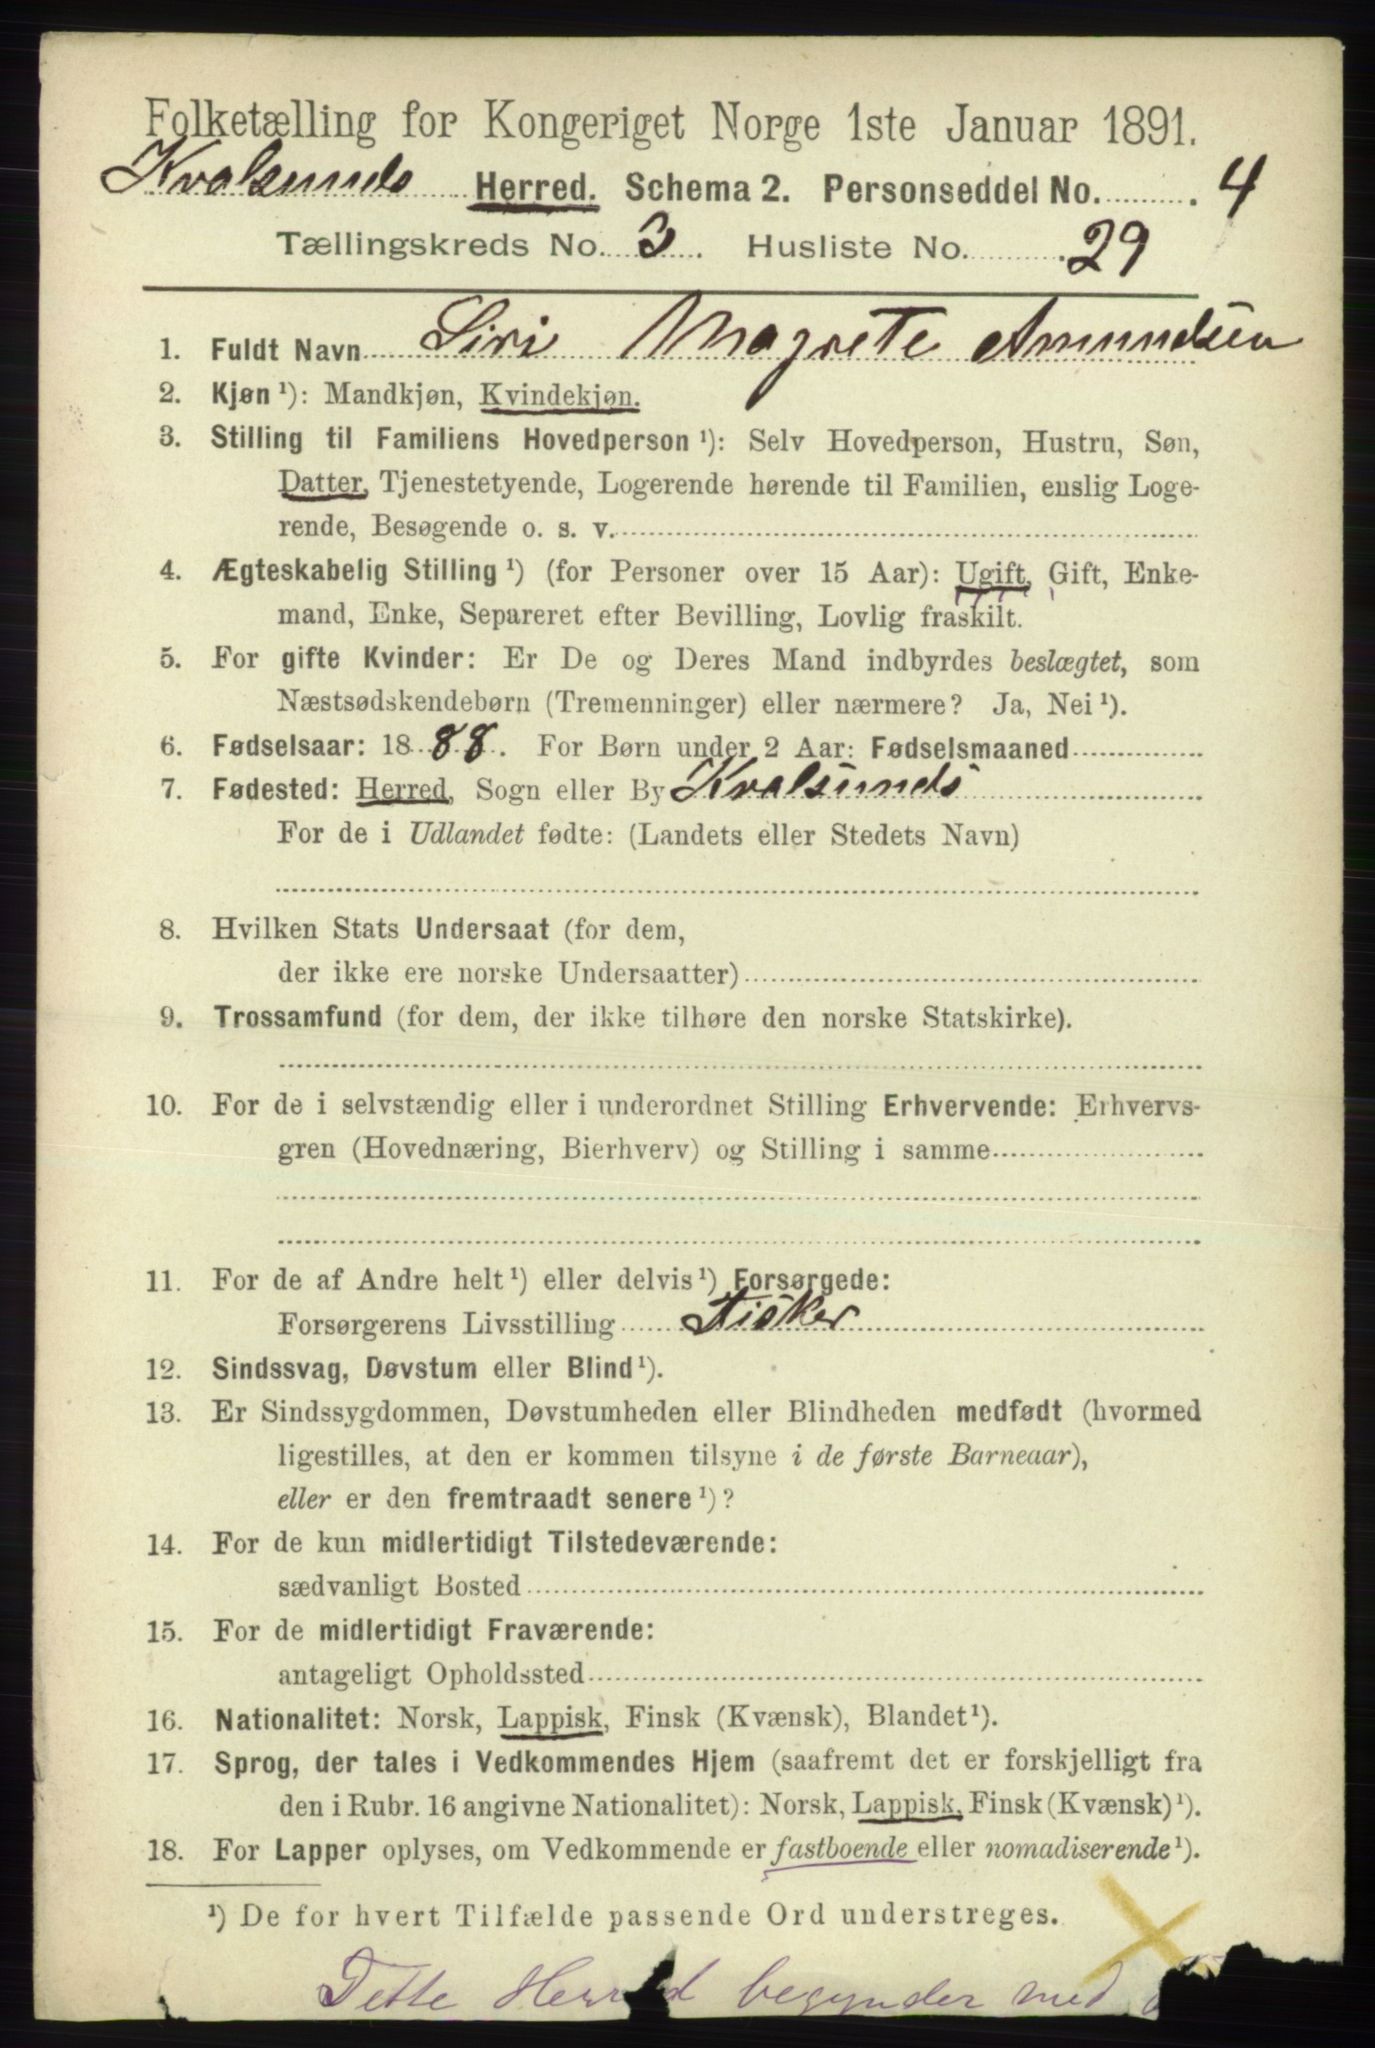 Folketælling for Kongeriget Norge 1ste Januar 1891.
Kvalsunds Herred. Schema 2. Personseddel No. 4
Tællingskreds No. 3 Husliste No. 29
1. Fuldt Navn Siri Magrete Amundsen
2. Kjøn ¹): Mandkjøn, Kvindekjøn.
3. Stilling til Familiens Hovedperson ¹): Selv Hovedperson, Hustru, Søn,
Datter, Tjenestetyende, Logerende hørende til Familien, enslig Loge-
rende, Besøgende o. s. v.
4. Ægteskabelig Stilling ¹) (for Personer over 15 Aar): Ugift, Gift, Enke-
mand, Enke, Separeret efter Bevilling, Lovlig fraskilt.
5. For gifte Kvinder: Er De og Deres Mand indbyrdes beslægtet, som
Næstsødskendebørn (Tremenninger) eller nærmere? Ja, Nei ¹).
6. Fødselsaar: 1888. For Børn under 2 Aar: Fødselsmaaned
7. Fødested: Herred, Sogn eller By Kvalsunds
For de i Udlandet fødte: (Landets eller Stedets Navn)
8. Hvilken Stats Undersaat (for dem,
der ikke ere norske Undersaatter)
9. Trossamfund (for dem, der ikke tilhøre den norske Statskirke).
10. For de i selvstændig eller i underordnet Stilling Erhvervende: Erhvervs-
gren (Hovednæring, Bierhverv) og Stilling i samme
11. For de af Andre helt ¹) eller delvis ¹) Forsørgede:
Forsørgerens Livsstilling Fisker
12. Sindssvag, Døvstum eller Blind ¹).
13. Er Sindssygdommen, Døvstumheden eller Blindheden medfødt (hvormed
ligestilles, at den er kommen tilsyne i de første Barneaar),
eller er den fremtraadt senere ¹)?
14. For de kun midlertidigt Tilstedeværende:
sædvanligt Bosted
15. For de midlertidigt Fraværende:
antageligt Opholdssted
16. Nationalitet: Norsk, Lappisk, Finsk (Kvænsk), Blandet ¹).
17. Sprog, der tales i Vedkommendes Hjem (saafremt det er forskjelligt fra
den i Rubr. 16 angivne Nationalitet): Norsk, Lappisk, Finsk (Kvænsk) ¹).
18. For Lapper oplyses, om Vedkommende er fastboende eller nomadiserende ¹).
¹) De for hvert Tilfælde passende Ord understreges.
Dette Herred begynder med